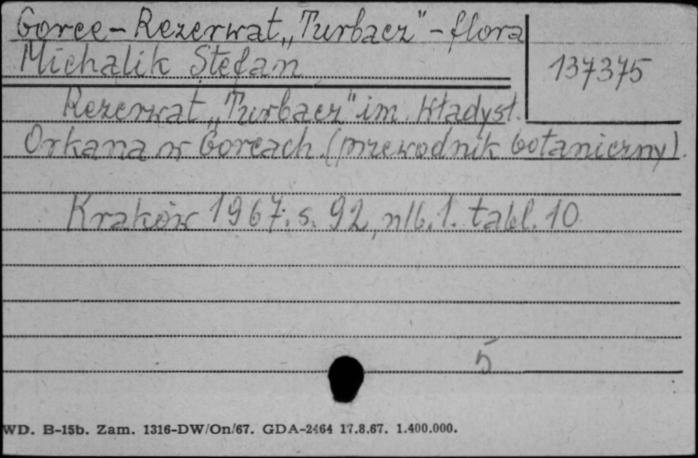 Gorce - Rezerwat „Turbacz" - flora
Michalik Stefan
137375
Rezerwat „Turbacz" im. Władysł.
Orkana w Gorcach. (przewodnik botaniczny).
Kraków 1967, s. 92, nlb. 1. tabl. 10
5
WD. B-15b. Zam. 1316-DW/On/67. GDA-2464 17.8.67. 1.400.000.